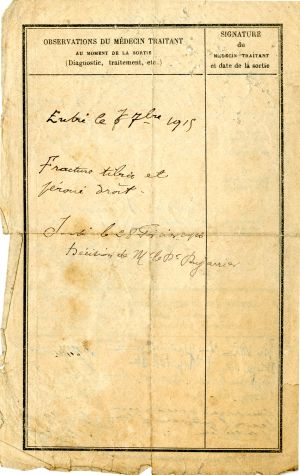 OBSERVATIONS DU MÉDECIN TRAITANT
AU MOMENT DE LA SORTIE
(Diagnostic, traitement, etc.)
SIGNATURE
du
MÉDECIN TRAITANT
et date de la sortie
Entré le 8 7bre 1915
Fracture tibia et
péroné droit.
le 28
Décision de M. le Dr